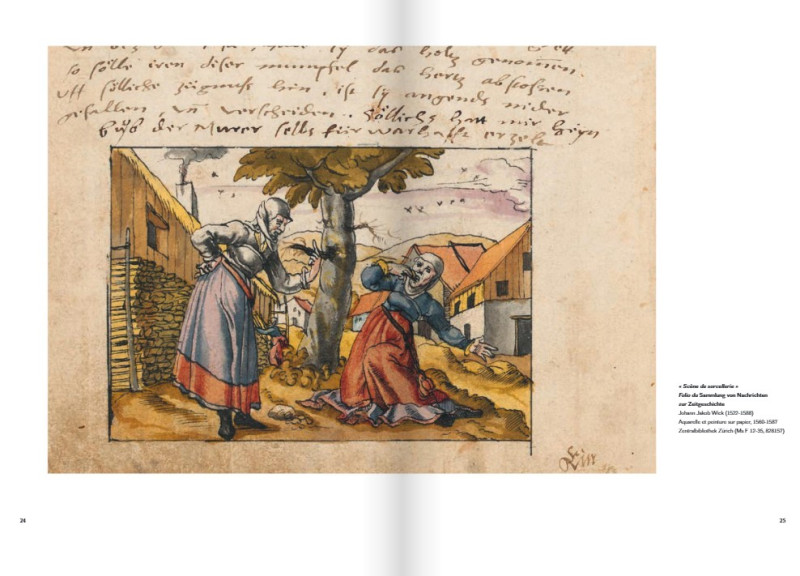 so sölle iren diser mumpfel das hertz abstossen
uff sölliche zügnuß hin, ist sy angends nider
gefallen, uñ verscheiden. Söllichs hatt mir heÿn
der Murer selbs für warhafft erzelt
« Scène de sorcellerie »
Folio de Sammlung von Nachrichten
zur Zeitgeschichte
Johann Jakob Wick (1522-1588)
Aquarelle et peinture sur papier, 1560-1587
Zentralbibliothek Zürich (Ms F 12-35, 828157)
24
25